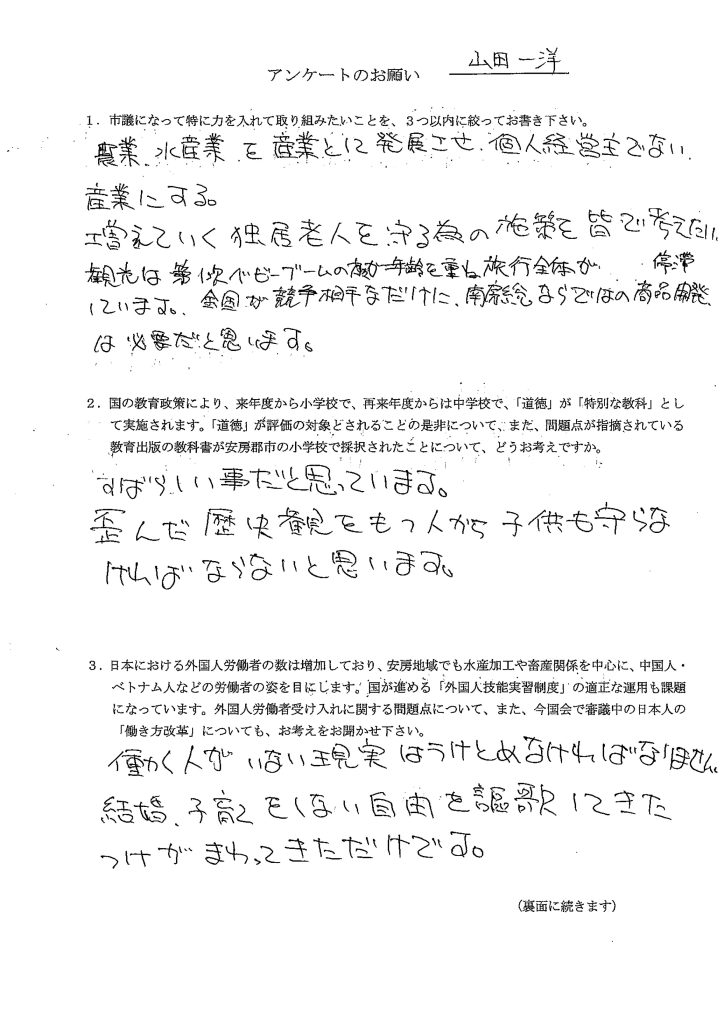 アンケートのお願い 山田一洋
1．市議になって特に力を入れて取り組みたいことを、３つ以内に絞ってお書き下さい。
農業、水産業を産業として発展させ、個人経営主でない
産業にする。
増えていく独居老人を守る為の施策を皆で考えたい。
観光は第1次ベビーブームの方が年齢を重ね旅行全体が停滞
しています。全国が競争相手なだけに、南房総ならではの商品開発
は必要だと思います。
2．国の教育政策により、来年度から小学校で、再来年度からは中学校で、「道徳」が「特別な教科」とし
て実施されます。「道徳」が評価の対象とされることの是非について、また、問題点が指摘されている
教育出版の教科書が安房郡市の小学校で採択されたことについて、どうお考えですか。
すばらしい事だと思っています。
歪んだ歴史観をもつ人から子供も守らな
ければならないと思います。
3．日本における外国人労働者の数は増加しており、安房地域でも水産加工や畜産関係を中心に、中国人・
ベトナム人などの労働者の姿を目にします。国が進める「外国人技能実習制度」の適正な運用も課題
になっています。外国人労働者受け入れに関する問題点について、また、今国会で審議中の日本人の
「働き方改革」についても、お考えをお聞かせ下さい。
働く人がいない現実はうけとめなければなりません
結婚、子育てをしない自由を謳歌してきた
つけがまわってきただけです。
（裏面に続きます）